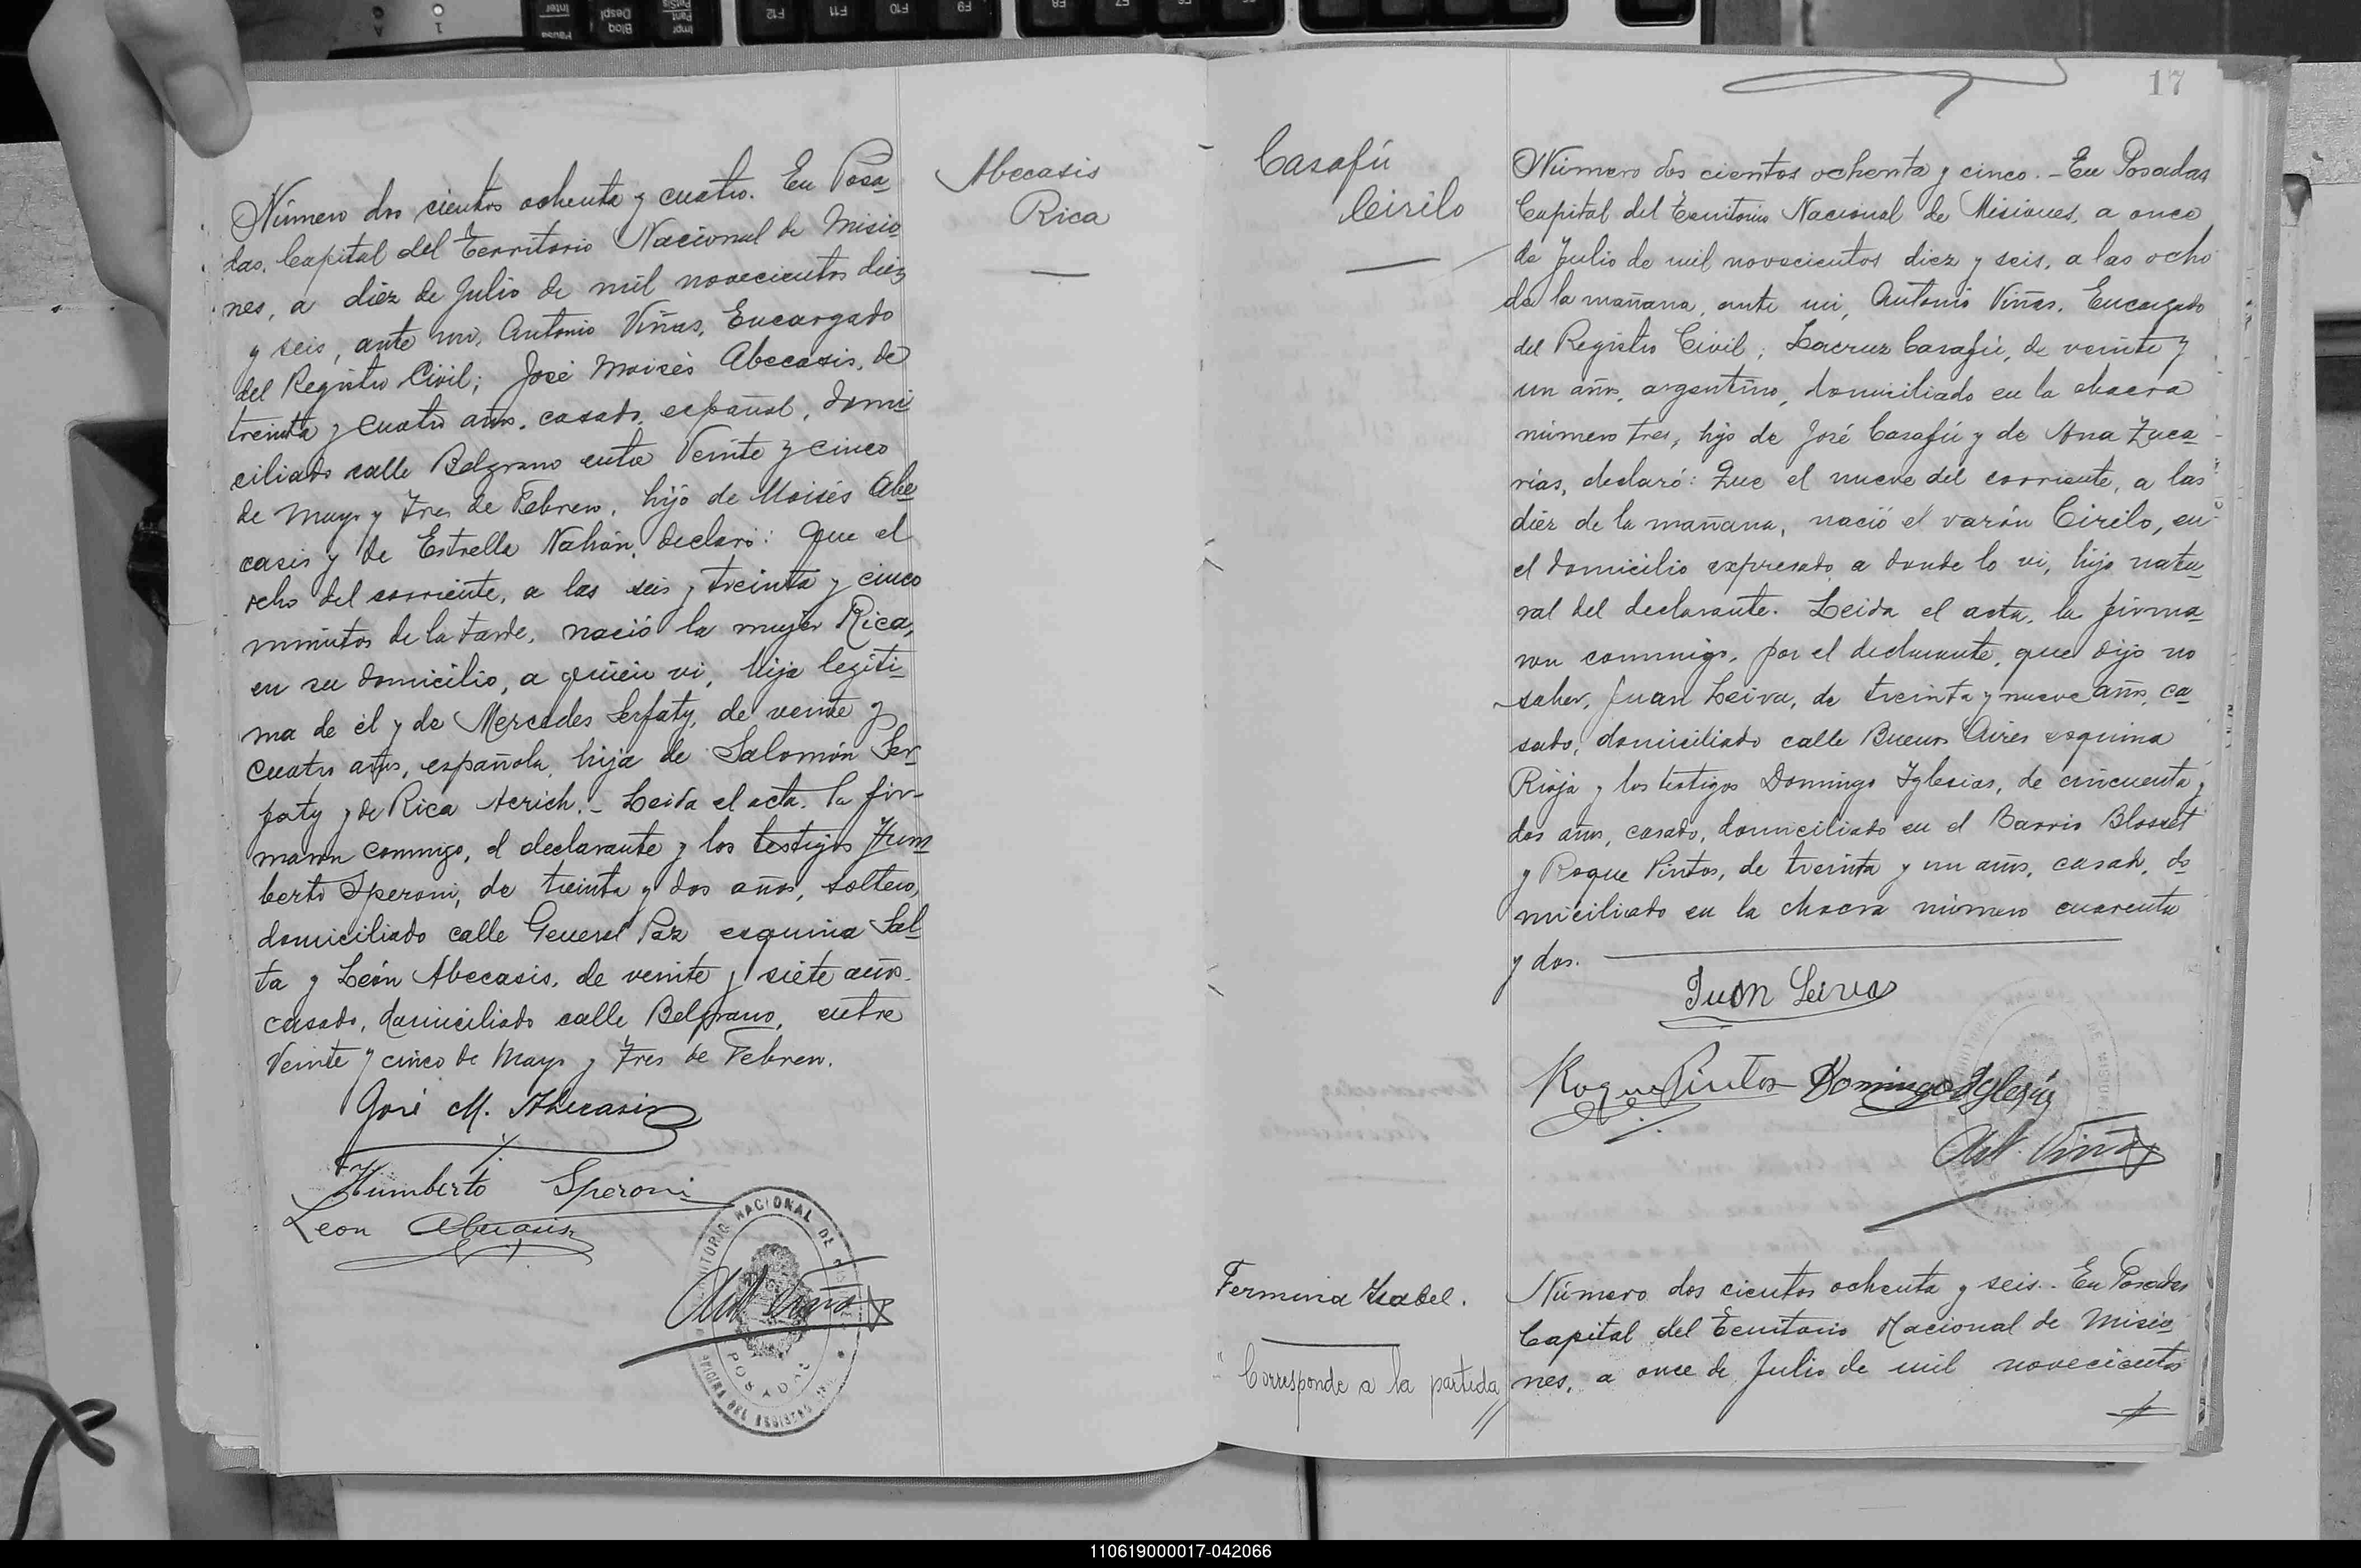 Abecasis
Rica
Número dos cientos ochenta y cuatro. En Posa
das, Capital del Territorio Nacional de Misio
nes, a diez de Julio de mil novecientos diez
y seis, ante mi, Antonio Viñas, Encargado
del Registro Civil; José Moisés Abecasis, de
treinta y cuatro años, casado, español, domi
ciliado calle Belgrano entre Veinte y cinco
de Mayo y Tres de Febrero, hijo de Moisés Abe
casis y de Estrella Nahón, declaró: Que el
ocho del corriente, a las seis y treinta y cinco
minutos de la tarde, nació la mujer Rica,
en su domicilio, a quien vi, hija legíti-
ma de él y de Mercedes Serfaty, de veinte y
cuatro años, española, hija de Salomón Ser-
faty y de Rica Acrich.- Leida el acta, la fir-
maron conmigo, el declarante y los testigos Hum
berto Speroni, de treinta y dos años, soltero,
domiciliado calle General Paz esquina Sal-
ta y León Abecasis, de veinte y siete años
casado, domiciliado calle Belgrano, entre
Veinte y cinco de Mayo y Tres de Febrero.
José M. Abecasis
Humberto Speroni
Leon Abecasis
TERRITORIO NACIONAL DE MISIONES
POSADAS
OFICINA DEL REGISTRO
Ant. Viñas
17
Casafú
Cirilo
Número dos cientos ochenta y cinco.- En Posadas
Capital del Territorio Nacional de Misiones, a once
de Julio de mil novecientos diez y seis, a las ocho
de la mañana, ante mi, Antonio Viñas, Encargado
del Registro Civil; Lacruz Casafú, de veinte y
un años, argentino, domiciliado en la chacra
número tres, hijo de José Casafú y de Ana Zaca
rías, declaró: Que el nueve del corriente, a las
diez de la mañana, nació el varón Cirilo, en
el domicilio expresado a donde lo vi, hijo natu
ral del declarante. Leida el acta, la firma
ron conmigo, por el declarante, que dijo no
saber, Juan Leiva, de treinta y nueve años, ca
sado, domiciliado calle Buenos Aires esquina
Rioja y los testigos Domingo Iglesias, de cincuenta y
dos años, casado, domiciliado en el Barrio Blosset
y Roque Pintos, de treinta y un años, casado, do
miciliado en la chacra número cuarenta
y dos.
Juan Leiva
Roque Pintos Domingo Iglesias
Ant. Viñas
Fermina Isabel.
Corresponde a la partida
Número dos cientos ochenta y seis.- En Posadas
Capital del Territorio Nacional de Misio
nes, a once de Julio de mil novecientos
110619000017-042066